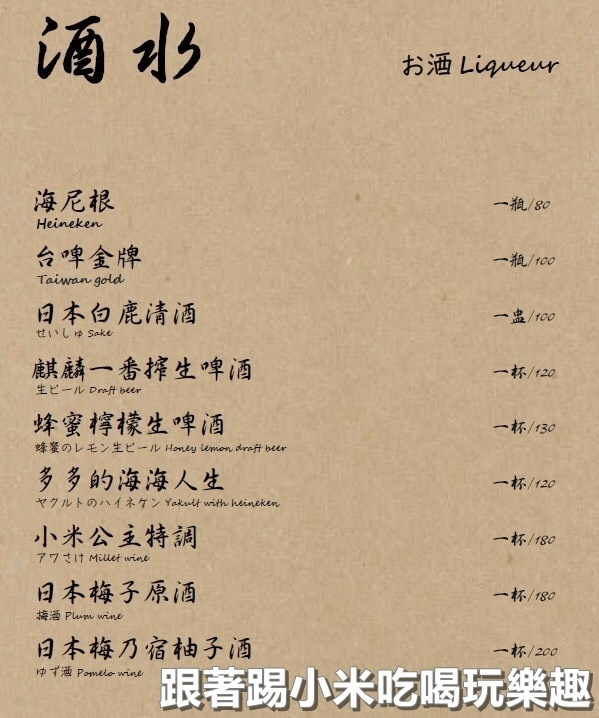 酒水
お酒 Liqueur
海尼根 一瓶/80
Heineken
台啤金牌 一瓶/100
Taiwan gold
日本白鹿清酒 一盅/100
せいしゅ Sake
麒麟一番搾生啤酒 一杯/120
生ビール Draft beer
蜂蜜檸檬生啤酒 一杯/130
蜂蜜のレモン生ビール Honey lemon draft beer
多多的海海人生 一杯/120
ヤクルトのハイネケン Yakult with heineken
小米公主特調 一杯/180
アワさけ Millet wine
日本梅子原酒 一杯/180
梅酒 Plum wine
日本梅乃宿柚子酒 一杯/200
ゆず酒 Pomelo wine
跟著踢小米吃喝玩樂趣